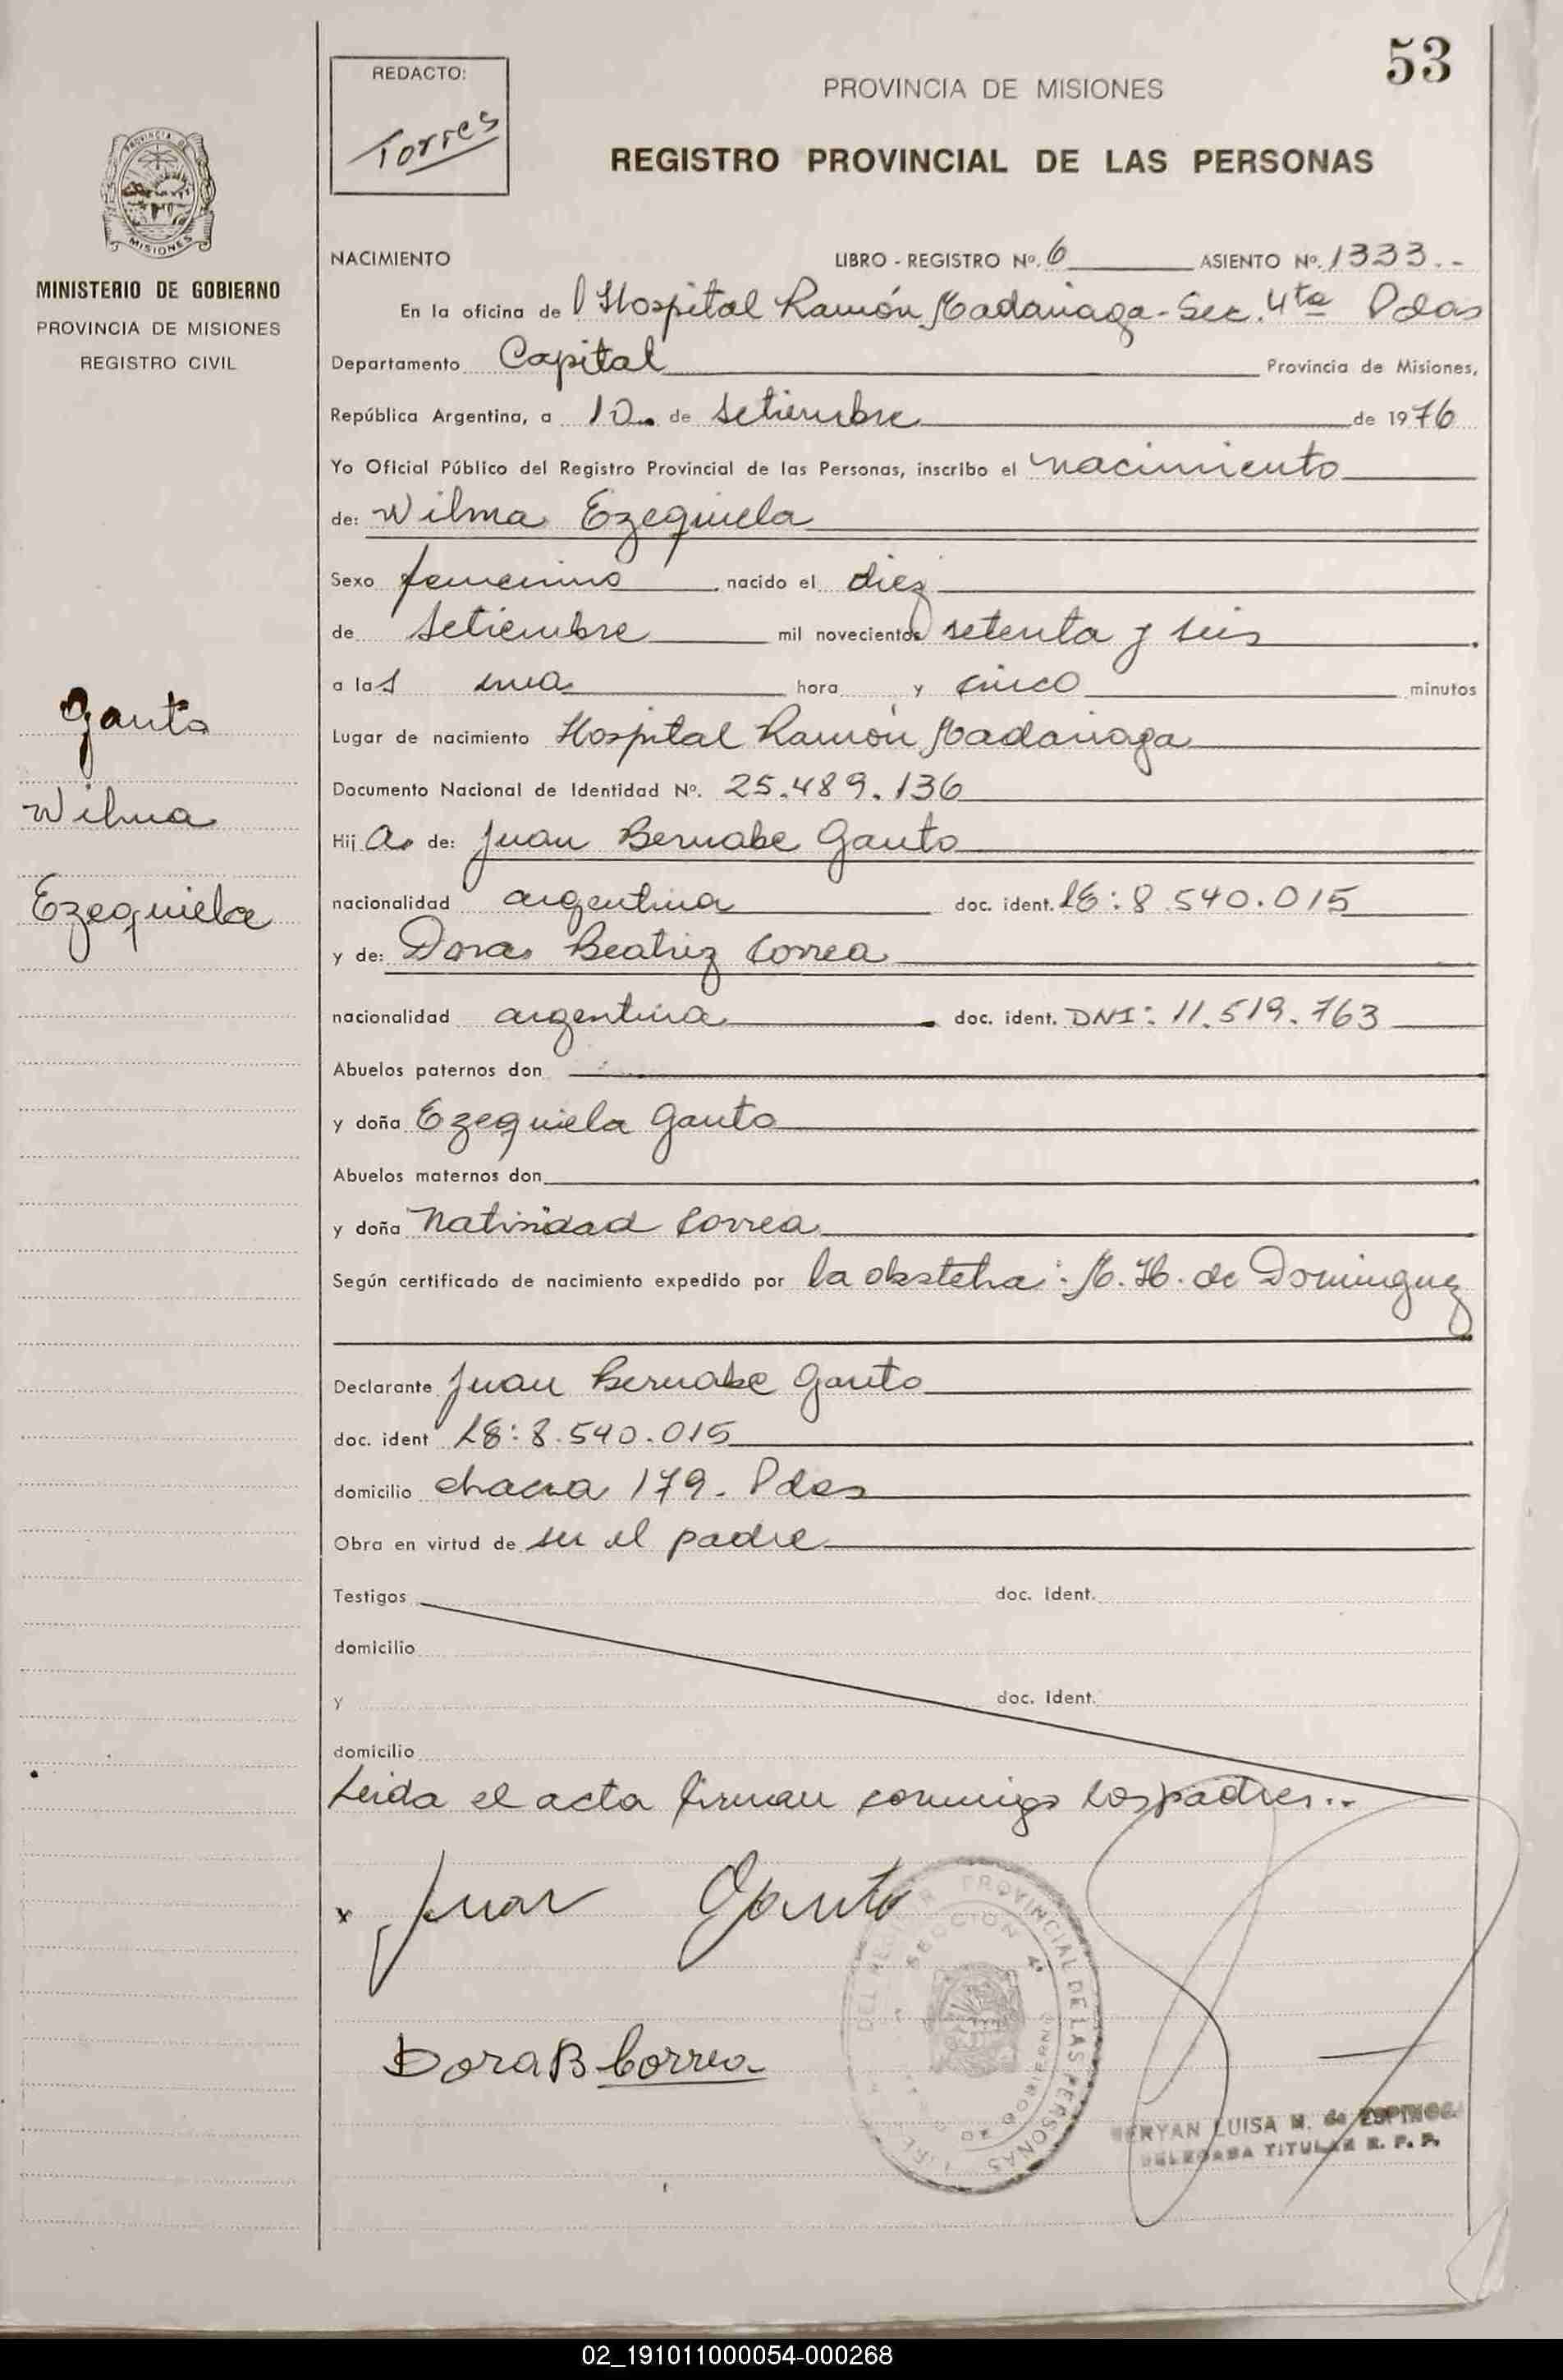 53
REDACTO:
Torres
PROVINCIA DE MISIONES
REGISTRO PROVINCIAL DE LAS PERSONAS
MISIONES
MINISTERIO DE GOBIERNO
PROVINCIA DE MISIONES
REGISTRO CIVIL
Gauto
Wilma
Ezequiela
NACIMIENTO LIBRO - REGISTRO Nº. 6 ASIENTO Nº. 1333.-
En la oficina de l Hospital Ramón Madariaga - Sec. 4ta Pdas
Departamento Capital Provincia de Misiones,
República Argentina, a 10 de setiembre de 1976
Yo Oficial Público del Registro Provincial de las Personas, inscribo el nacimiento
de: Wilma Ezequiela
Sexo femenino nacido el diez
de setiembre mil novecientos setenta y seis
a las una hora y cinco minutos
Lugar de nacimiento Hospital Ramón Madariaga
Documento Nacional de Identidad Nº. 25.489.136
Hij a de: Juan Bernabe Gauto
nacionalidad argentina doc. ident. LE: 8.540.015
y de: Dora Beatriz Correa
nacionalidad argentina doc. ident. DNI: 11.519.763
Abuelos paternos don
y doña Ezequiela Gauto
Abuelos maternos don
y doña Natividad Correa
Según certificado de nacimiento expedido por la obstetra: M. H. de Dominguez
Declarante Juan Bernabe Gauto
doc. ident LE: 8.540.015
domicilio chacra 179. Pdas
Obra en virtud de ser el padre
Testigos doc. ident.
domicilio
y doc. ident.
domicilio
Leida el acta firman conmigo los padres..-
x Juan Gauto
PROVINCIAL DE LAS PERSONAS
SECCION 4ª
Dora B Correa
LUISA M. de ESPINOSA
DELEGADA TITULAR R. P. P.
02_191011000054-000268